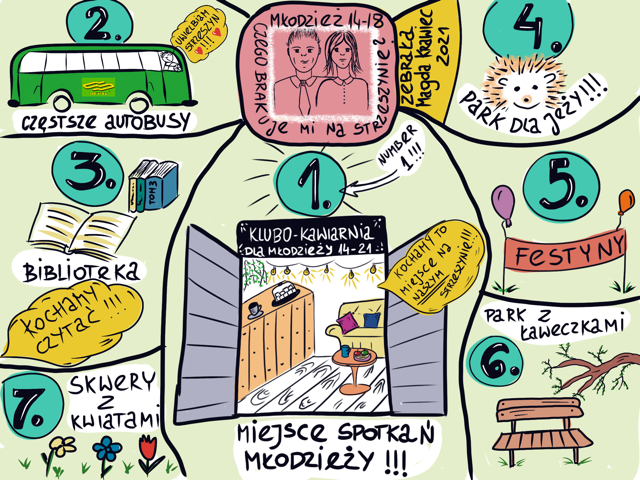 MŁODZIEŻ 14-18
CZEGO BRAKUJE MI NA STRZESZYNIE?
ZEBRAŁA
Magda Krawiec
2021
1.
NUMBER
1!!!
"KLUBO-KAWIARNIA"
DLA MŁODZIEŻY 14-21
KOCHAMY TO
MIEJSCE NA
NASZYM
STRZESZYNIE!!!
MIEJSCE SPOTKAŃ
MŁODZIEŻY !!!
2.
UWIELBIAM
STRZESZYN
!!!
CZĘSTSZE AUTOBUSY
3.
TOM 3
BIBLIOTEKA
KOCHAMY
CZYTAĆ !!!
4.
PARK DLA JEŻY!!!
5.
FESTYNY
PARK Z
ŁAWECZKAMI
6.
7.
SKWERY
Z
KWIATAMI